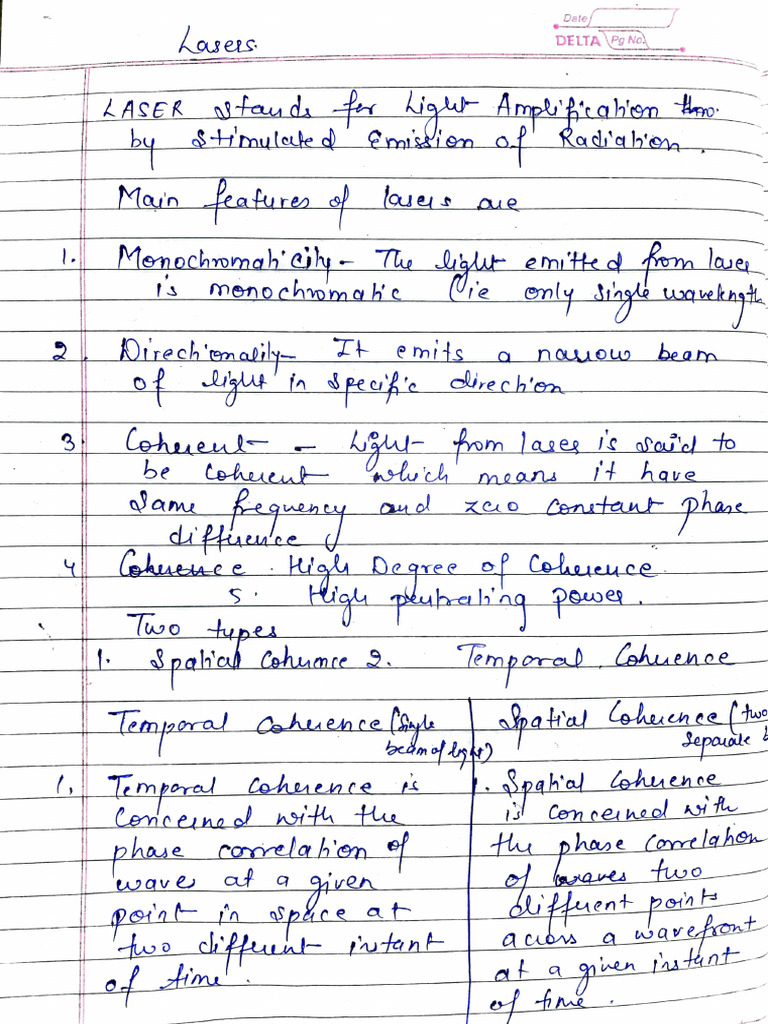 Date
DELTA Pg No.
Lasers.
LASER stands for Light Amplification
by Stimulated Emission of Radiation.
Main features of lasers are
1. Monochromaticity - The light emitted from laser
is monochromatic (ie only single wavelength
2. Directionality - It emits a narrow beam
of light in specific direction
3. Coherent - Light from laser is said to
be coherent which means it have
same frequency and zero constant phase
difference
4 Coherence. High Degree of Coherence.
5. High pentrating power.
Two types
1. Spatial Coherence 2. Temporal Coherence
Temporal Coherence (Single
beam of light)
1. Temporal Coherence is
Concerned with the
phase correlation of
waves at a given
point in space at
two different instant
of time.
Spatial Coherence (two
separate b
1. Spatial Coherence
is concerned with
the phase correlation
of waves two
different points
across a wavefront
at a given instant
of time.